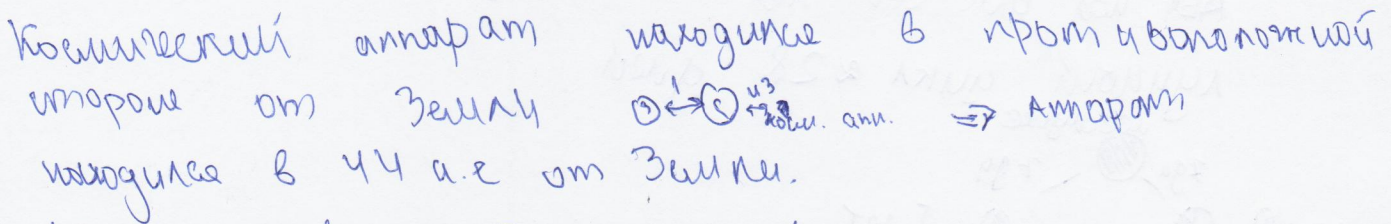 Космический аппарат находился в противоположной
стороне от Земли З 1 С 43 косм. апп. => Аппарат
находился в 44 а.е от Земли.